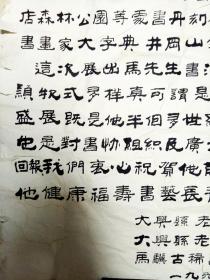 店森林公園等處書丹刻
書畫家大字典井岡山
這次展出馬先生書
類款式多样真可謂是
盛展既是他半個多世
也是對書協組織民廣
回報我們衷心祝賀他
他健康福壽書藝長青
大興縣老
大興縣老
馬騏古稀
一九九